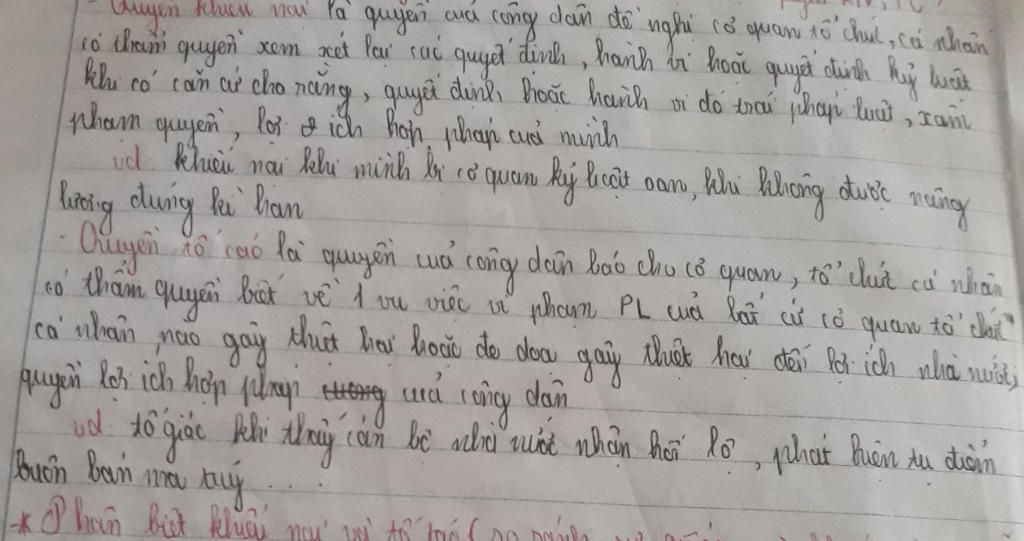 - Quyền khiếu nại là quyền của công dân đề nghị cơ quan tổ chức, cá nhân
có thẩm quyền xem xét lại các quyết định, hành vi hoặc quyết định kỷ luật
khi có căn cứ cho rằng, quyết định hoặc hành vi đó trái pháp luật, xâm
phạm quyền, lợi ích hợp pháp của mình
vd khiếu nại khi mình bị cơ quan kỷ luật oan, khi không được nâng
lương đúng kì hạn
- Quyền tố cáo là quyền của công dân báo cho cơ quan, tổ chức cá nhân
có thẩm quyền biết về 1 vụ việc vi phạm PL của bất cứ cơ quan tổ chức
cá nhân nào gây thiệt hại hoặc đe dọa gây thiệt hại đến lợi ích nhà nước,
quyền lợi ích hợp pháp của công dân
vd tố giác khi thấy cán bộ nhà nước nhận hối lộ, phát hiện tụ điểm
buôn bán ma túy ....
* Phân biệt khiếu nại và tố cáo (